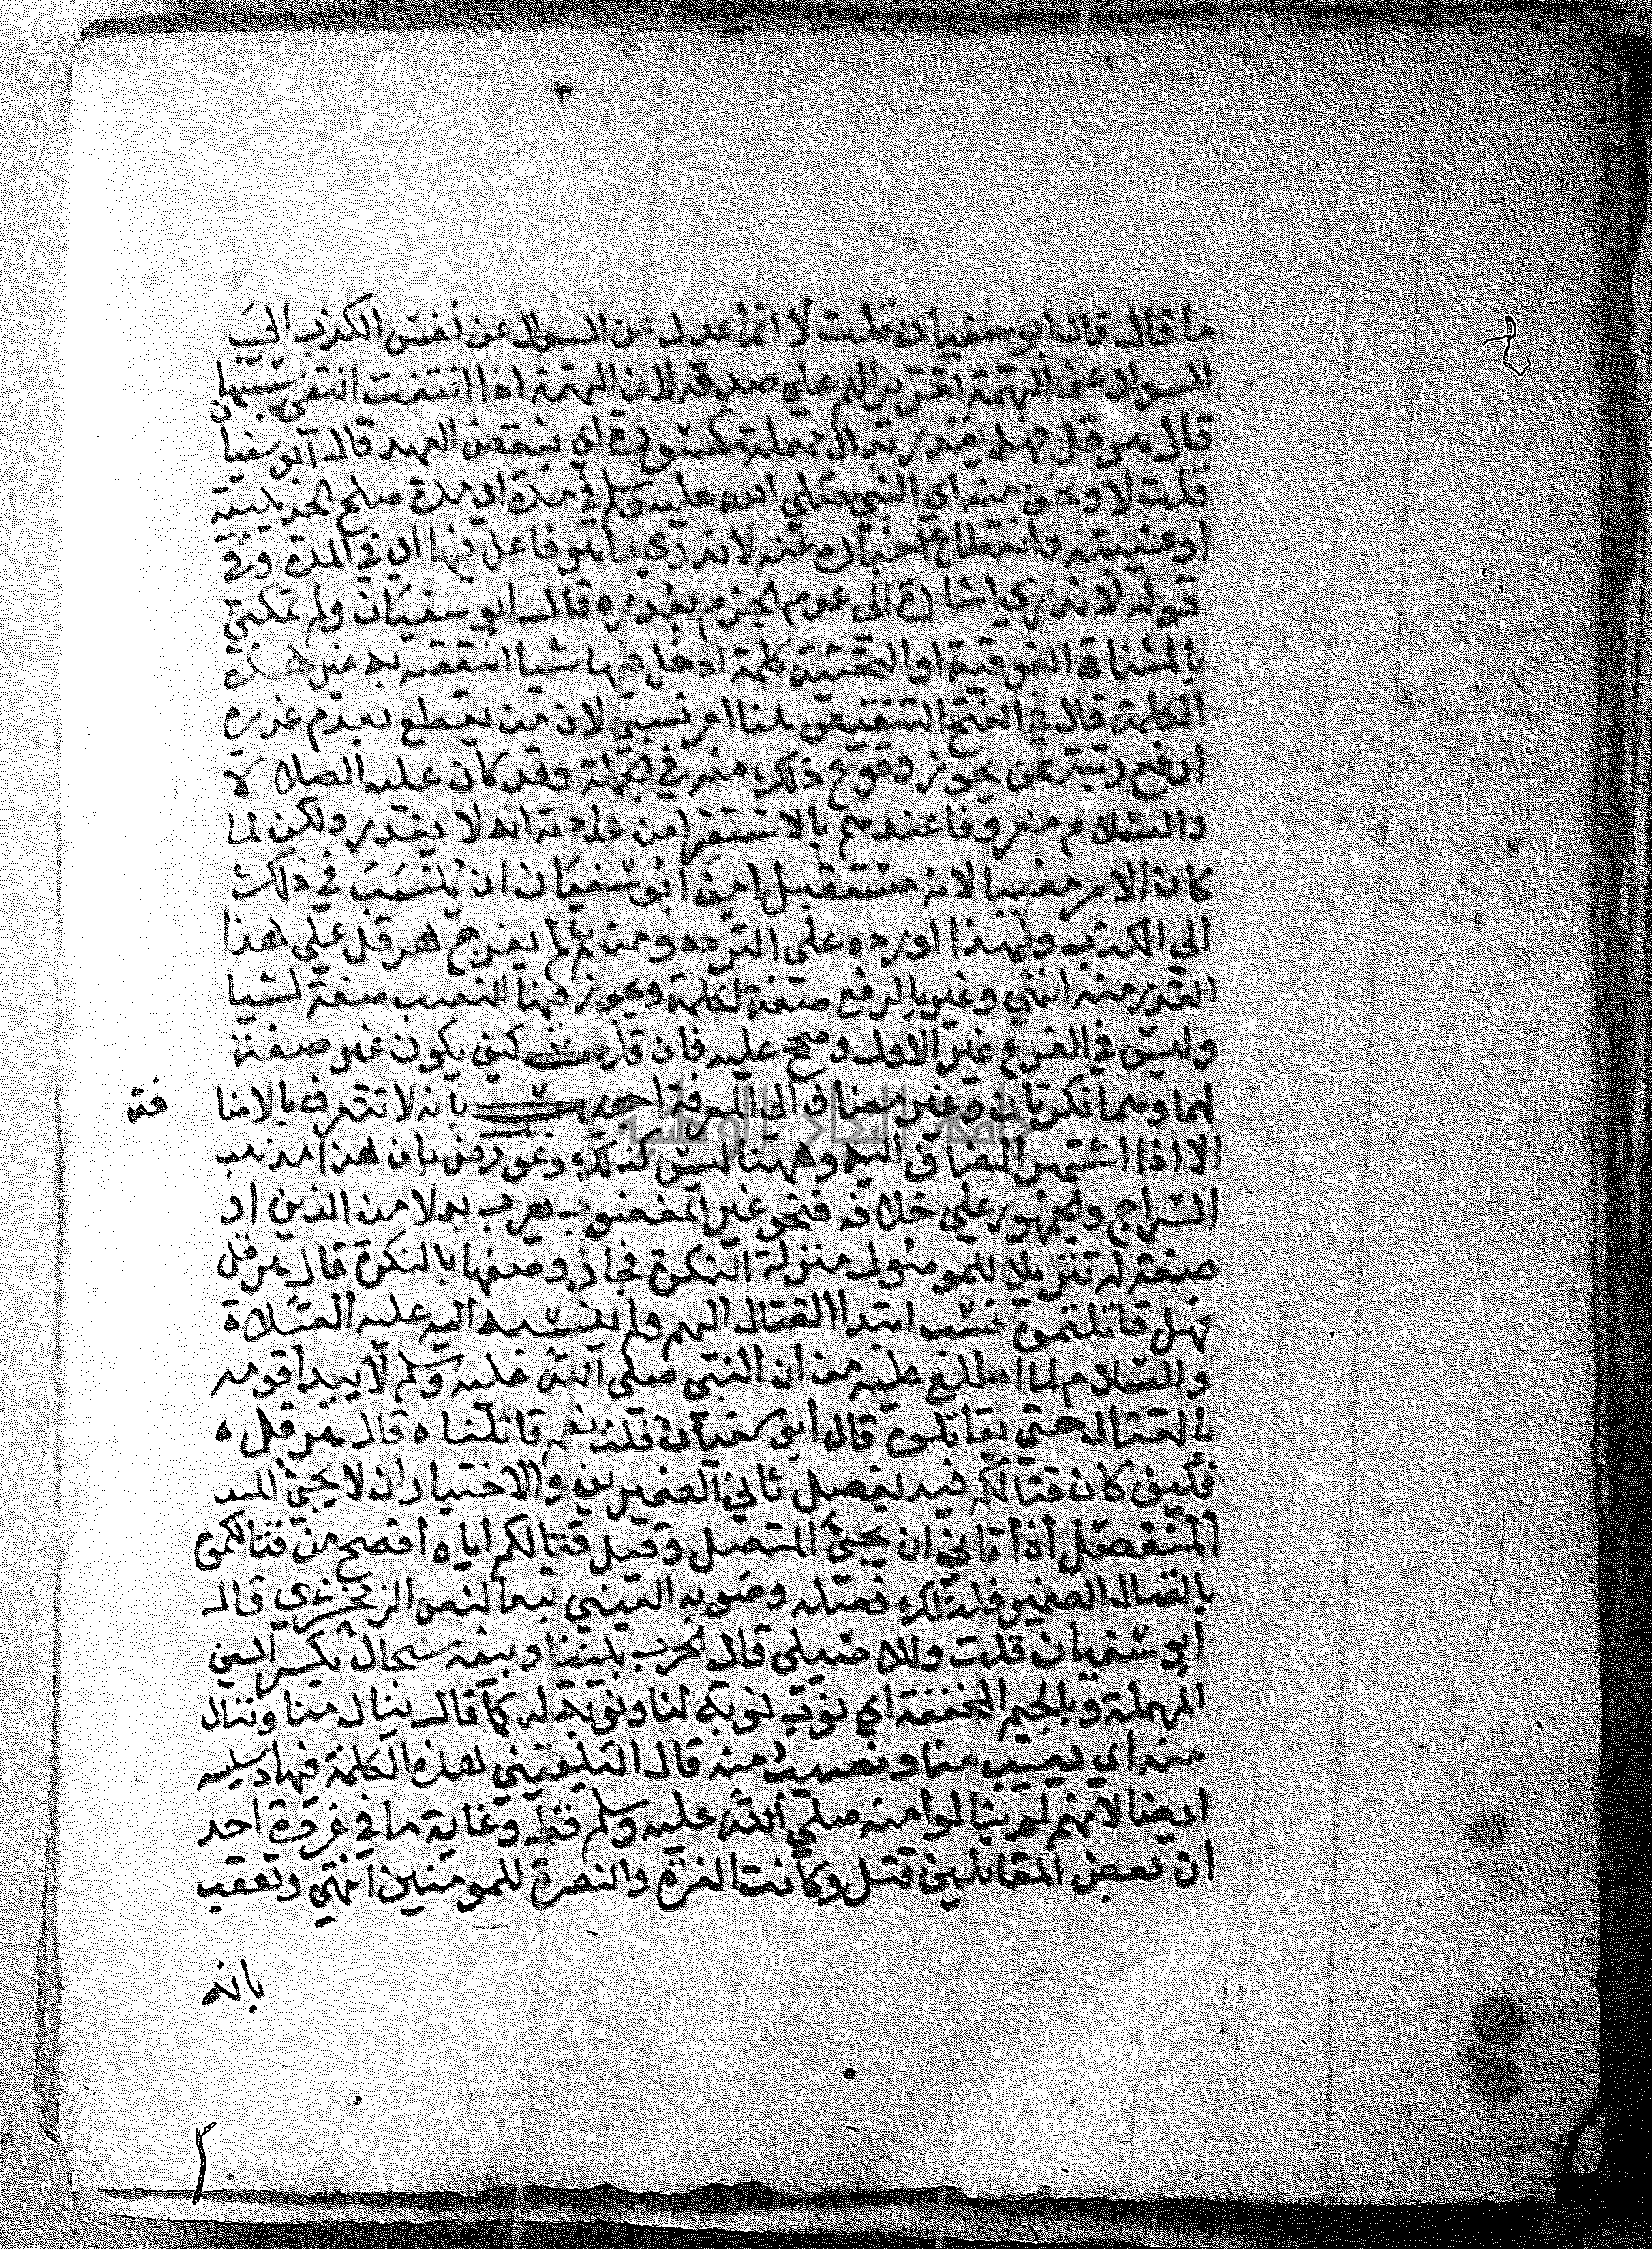 ما قال قال ابو سفيان قلت لا انما عدل عن السوال عن نفس الكذب الي
السوال عن التهمة تقريرا لهم علي صدقه لان التهمة اذا انتفت انتفي سببها
قال هرقل فهل يغدر بدال مهملة مكسورة اي ينقض العهد قال ابو سفيان
قلت لا ونحن منه اي النبي صلي الله عليه وسلم في مدة اي مدة صلح الحديبية
او غيبته وانقطاع اخباره عنه لا ندري ما هو فاعل فيها اي في المدة وفي
قوله لا ندري اشارة الي عدم الجزم بغدره قال ابو سفيان ولم تمكني
بالمثناة الفوقية او التحتية كلمة ادخل فيها شيا انتقصه به غير هذه
الكلمة قال في الفتح التنقيص هنا امر نسبي لان من يقطع بعدم غدره
ارفع رتبة ممن يجوز وقوع ذلك منه في الجملة وقد كان عليه الصلاة
والسلام معروفا عندهم بالاستقرا من عادته انه لا يغدر ولكن لما
كان الامر مغيبا لانه مستقبل امن ابو سفيان ان ينسب في ذلك
الي الكذب ولهذا اورده علي التردد ومن ثم لم يعرج هرقل علي هذا
القدر منه انتهي وغير بالرفع صفة لكلمة ويجوز فيها النصب صفة لشيا
وليس في الفرع غير الاول وصحح عليه فان قلت كيف يكون غير صفة
لهما وهما نكرتان وغير مضاف الي المعرفة اجيب بانه لا تتعرف بالاضا
فة
الا اذا اشتهر المضاف اليه وههنا ليس كذلك وعورض بان هذا مذهب
السراج والجمهور علي خلافه فنحو غير المغضوب يعرب بدلا من الذين او
صفة له تنزيلا للموصول منزلة النكرة فجاز وصفها بالنكرة قال هرقل
فهل قاتلتموه نسب ابتدا القتال اليهم ولم ينسبه اليه عليه الصلاة
والسلام لما اطلع عليه من ان النبي صلي الله عليه وسلم لا يبدا قومه
بالقتال حتي يقاتلوه قال ابو سفيان قلت نعم قاتلناه قال هرقل
فكيف كان قتالكم فيه بفصل ثاني الضميرين والاختيار ان لا يجئ
المنفصل اذا تاتي ان يجئ المتصل وقيل قتالكم اياه افصح من قتالكموه
باتصال الضمير فلذلك فصله وصوبه العيني تبعا لنص الزمخشري قال
ابو سفيان قلت وللاصيلي قال الحرب بيننا وبينه سجال بكسر السين
المهملة وبالجيم المخففة اي نوب نوبة لنا ونوبة له كما قال ينال منا وننال
منه اي يصيب منا ونصيب منه قال البلقيني هذه الكلمة فيها دسيسة
ايضا لانهم لم ينالوا منه صلي الله عليه وسلم قط وغاية ما في غزوة احد
ان بعض المقاتلين قتل وكانت العزة والنصرة للمومنين انتهي وتعقب
بانه